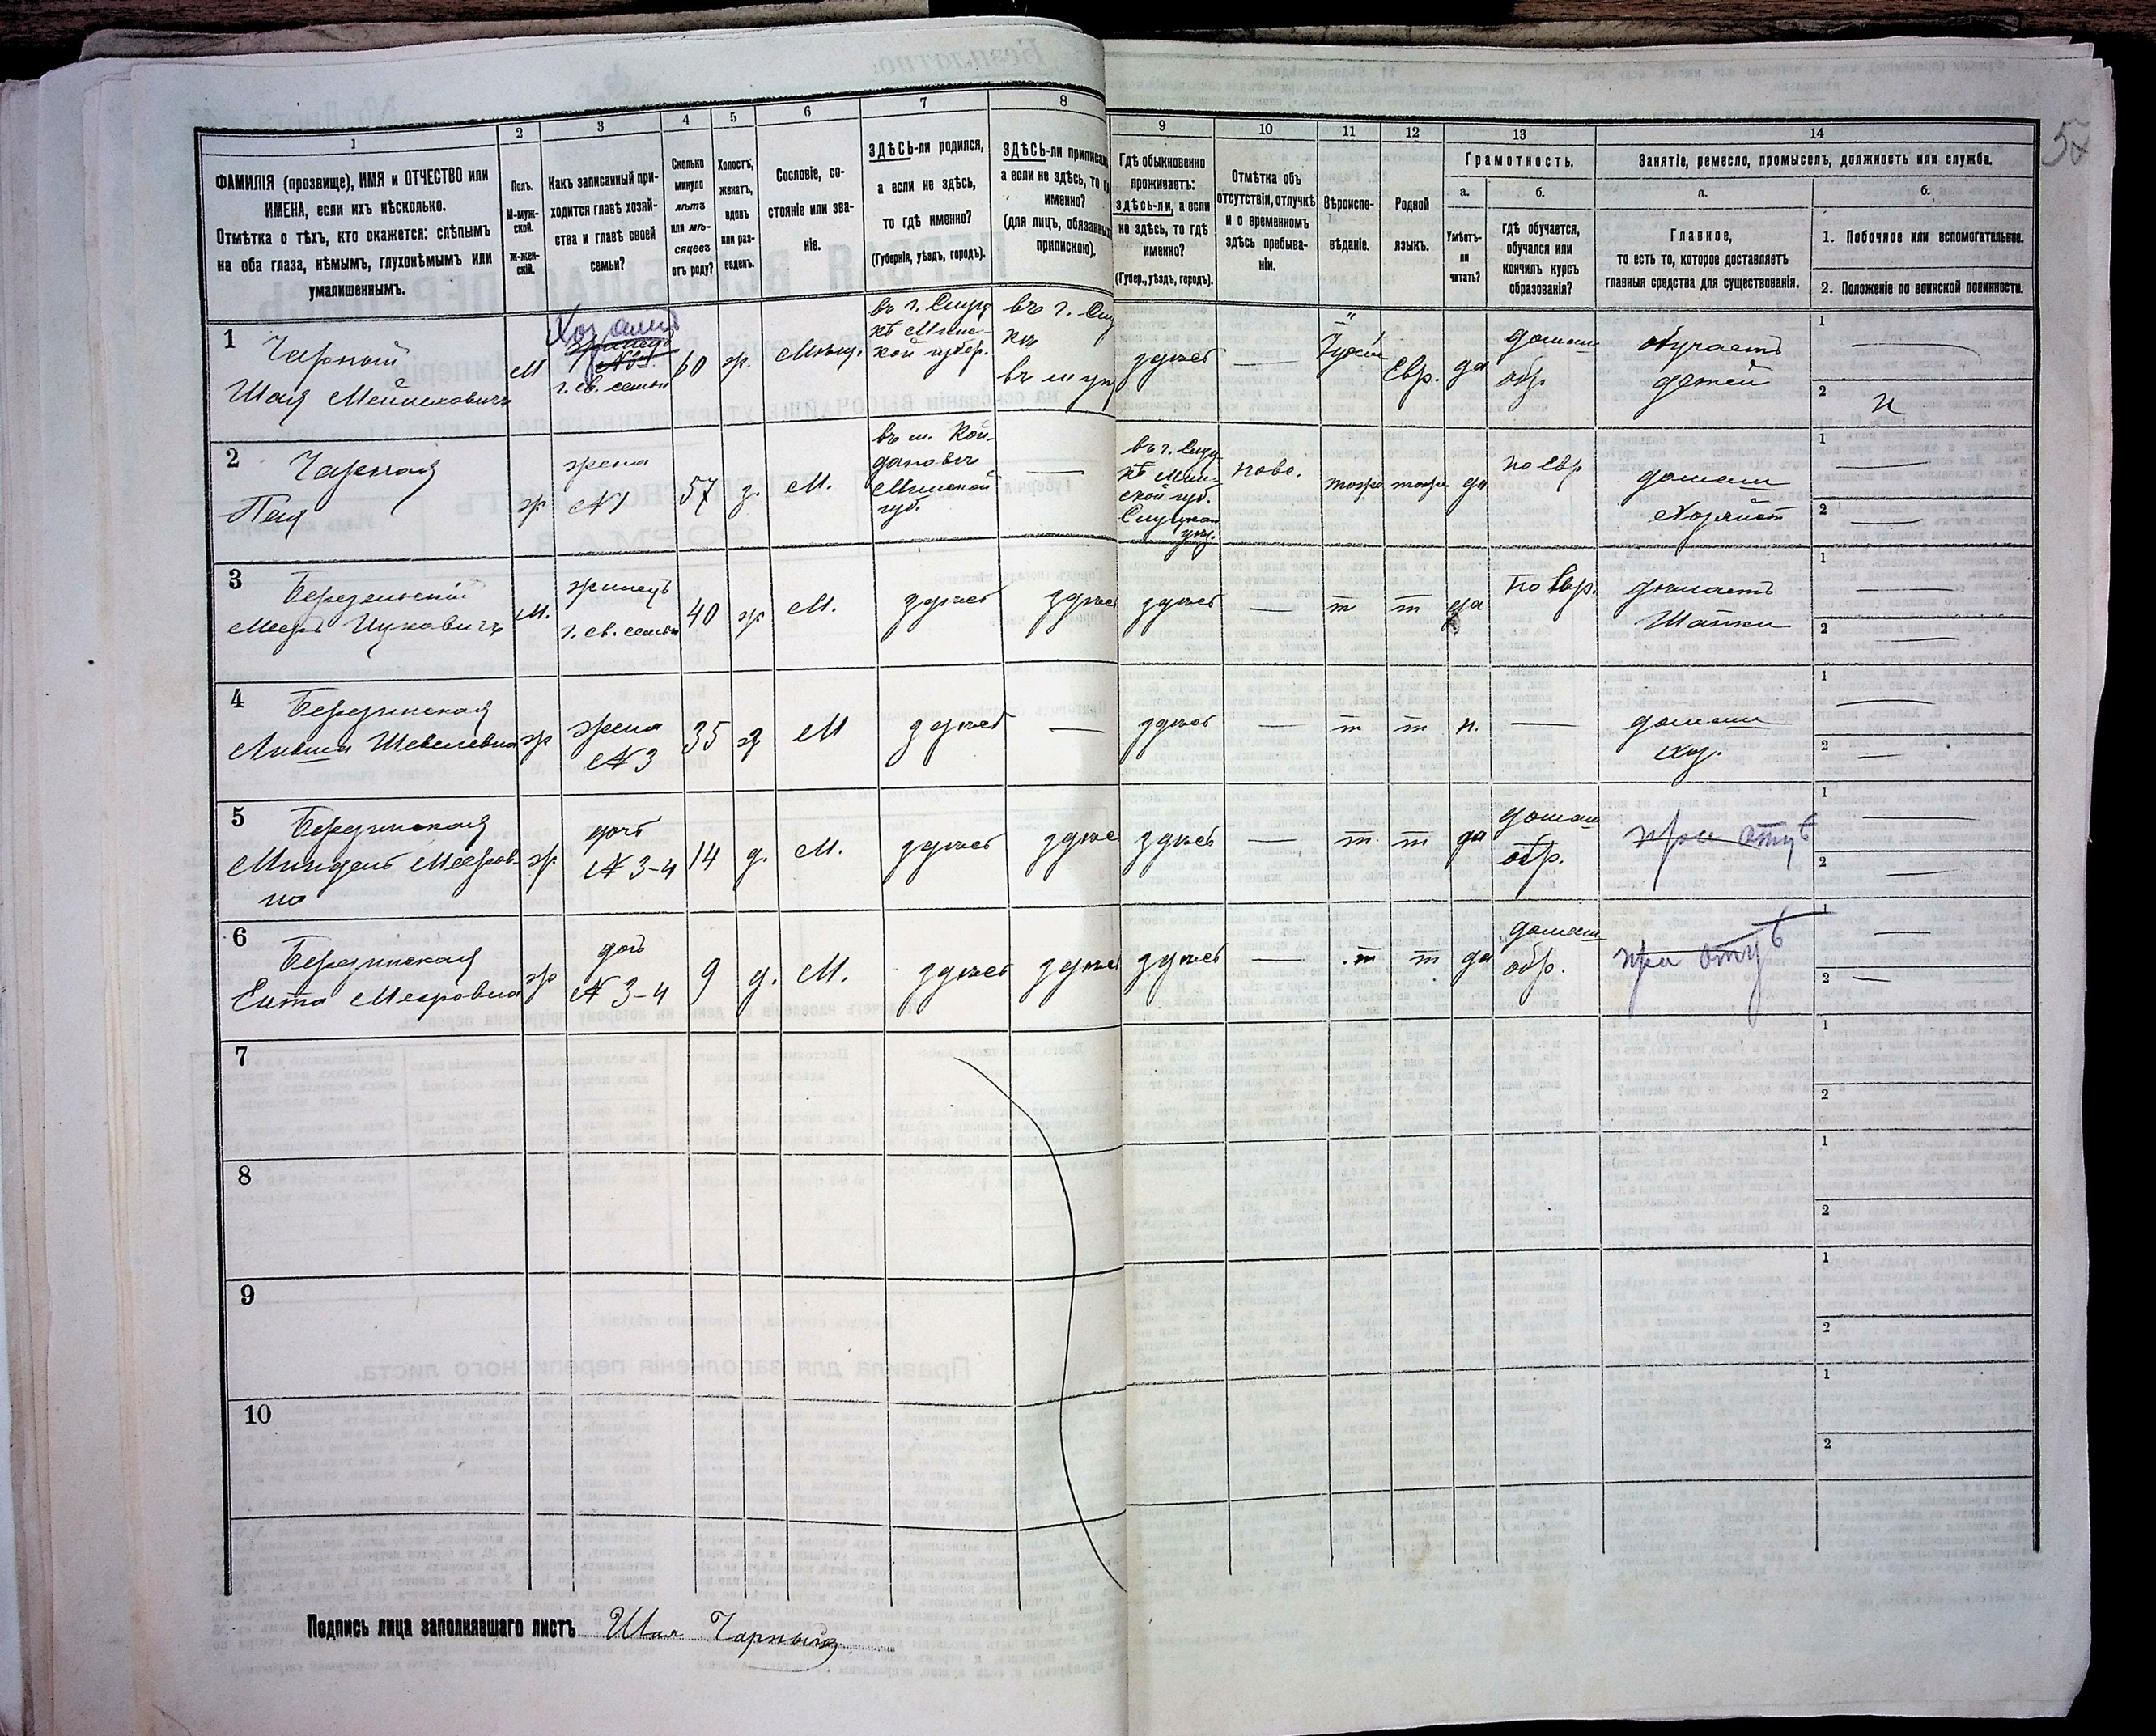 57
1 2 3 4 5 6 7 8 9 10 11 12 13 14
ФАМИЛІЯ (прозвище), ИМЯ и ОТЧЕСТВО или
ИМЕНА, если ихъ нѣсколько.
Отмѣтка о тѣхъ, кто окажется: слѣпымъ
на оба глаза, нѣмымъ, глухонѣмымъ или
умалишеннымъ.
Полъ.
М-муж-
ской.
ж-жен-
скій.
Какъ записанный при-
ходится главѣ хозяй-
ства и главѣ своей
семьи?
Сколько
минуло
лѣтъ
или мѣ-
сяцевъ
отъ роду?
Холостъ,
женатъ,
вдовъ
или раз-
веденъ.
Сословіе, со-
стояніе или зва-
ніе.
ЗДѢСЬ-ли родился,
а если не здѣсь,
то гдѣ именно?
(Губернія, уѣздъ, городъ).
ЗДѢСЬ-ли приписан
а если не здѣсь, то г
именно?
(для лицъ, обязанных
припискою).
Гдѣ обыкновенно
проживаетъ:
здѣсь-ли, а если
не здѣсь, то гдѣ
именно?
(Губер., уѣздъ, городъ).
Отмѣтка объ
отсутствіи, отлучкѣ
и о временномъ
здѣсь пребыва-
ніи.
Вѣроиспо-
вѣданіе.
Родной
языкъ.
Грамотность.
а.
Умѣетъ-
ли
читать?
б.
гдѣ обучается,
обучался или
кончилъ курсъ
образованія?
Занятіе, ремесло, промыселъ, должность или служба.
а.
Главное,
то есть то, которое доставляетъ
главныя средства для существованія.
б.
1. Побочное или вспомогательное.
2. Положеніе по воинской повинности.
1
Чарный
Шая
М
Хозяинъ
г. св. семьи
60
ж.
Мѣщ.
въ г. Слуц
кѣ Минс-
кой губер.
въ г. Слу
здѣсь
—
Іудей
Евр.
да
домаш
обр
обучаетъ
детей
1
2
н
2
Чарная
Пея
ж
жена
№1
57
з.
М.
въ м. Кой-
дановъ
Минской
губ.
—
въ г. Слуц-
кѣ Мин-
ской губ.
Слуцкаго
уѣз.
тоже
тоже
да
по Евр
домаш
Хозяйст
1
2
3
М.
жилецъ
г. св. семьи
40
ж
М.
здѣсь
здѣсь
здѣсь
—
т
т
да
по Евр.
дѣлаетъ
Шапки
1
2
4
Березинская
Шевелевна
ж
жена
№3
35
з
М
здѣсь
—
здѣсь
—
т
т
н.
—
домаш
хоз.
1
2
5
Березинская
Миндель Мееров
на
ж
дочь
№ 3-4
14
д.
М.
здѣсь
здѣсь
здѣсь
—
т
т
да
домаш
обр.
при отцѣ
1
2
6
Березинская
Ента Мееровна
ж
дочь
№ 3-4
9
д.
М.
здѣсь
здѣсь
здѣсь
—
т
т
да
домаш
обр.
при отцѣ
1
2
7
1
2
8
1
2
9
1
2
10
1
2
Подпись лица заполнявшаго листъ Шая Чарный